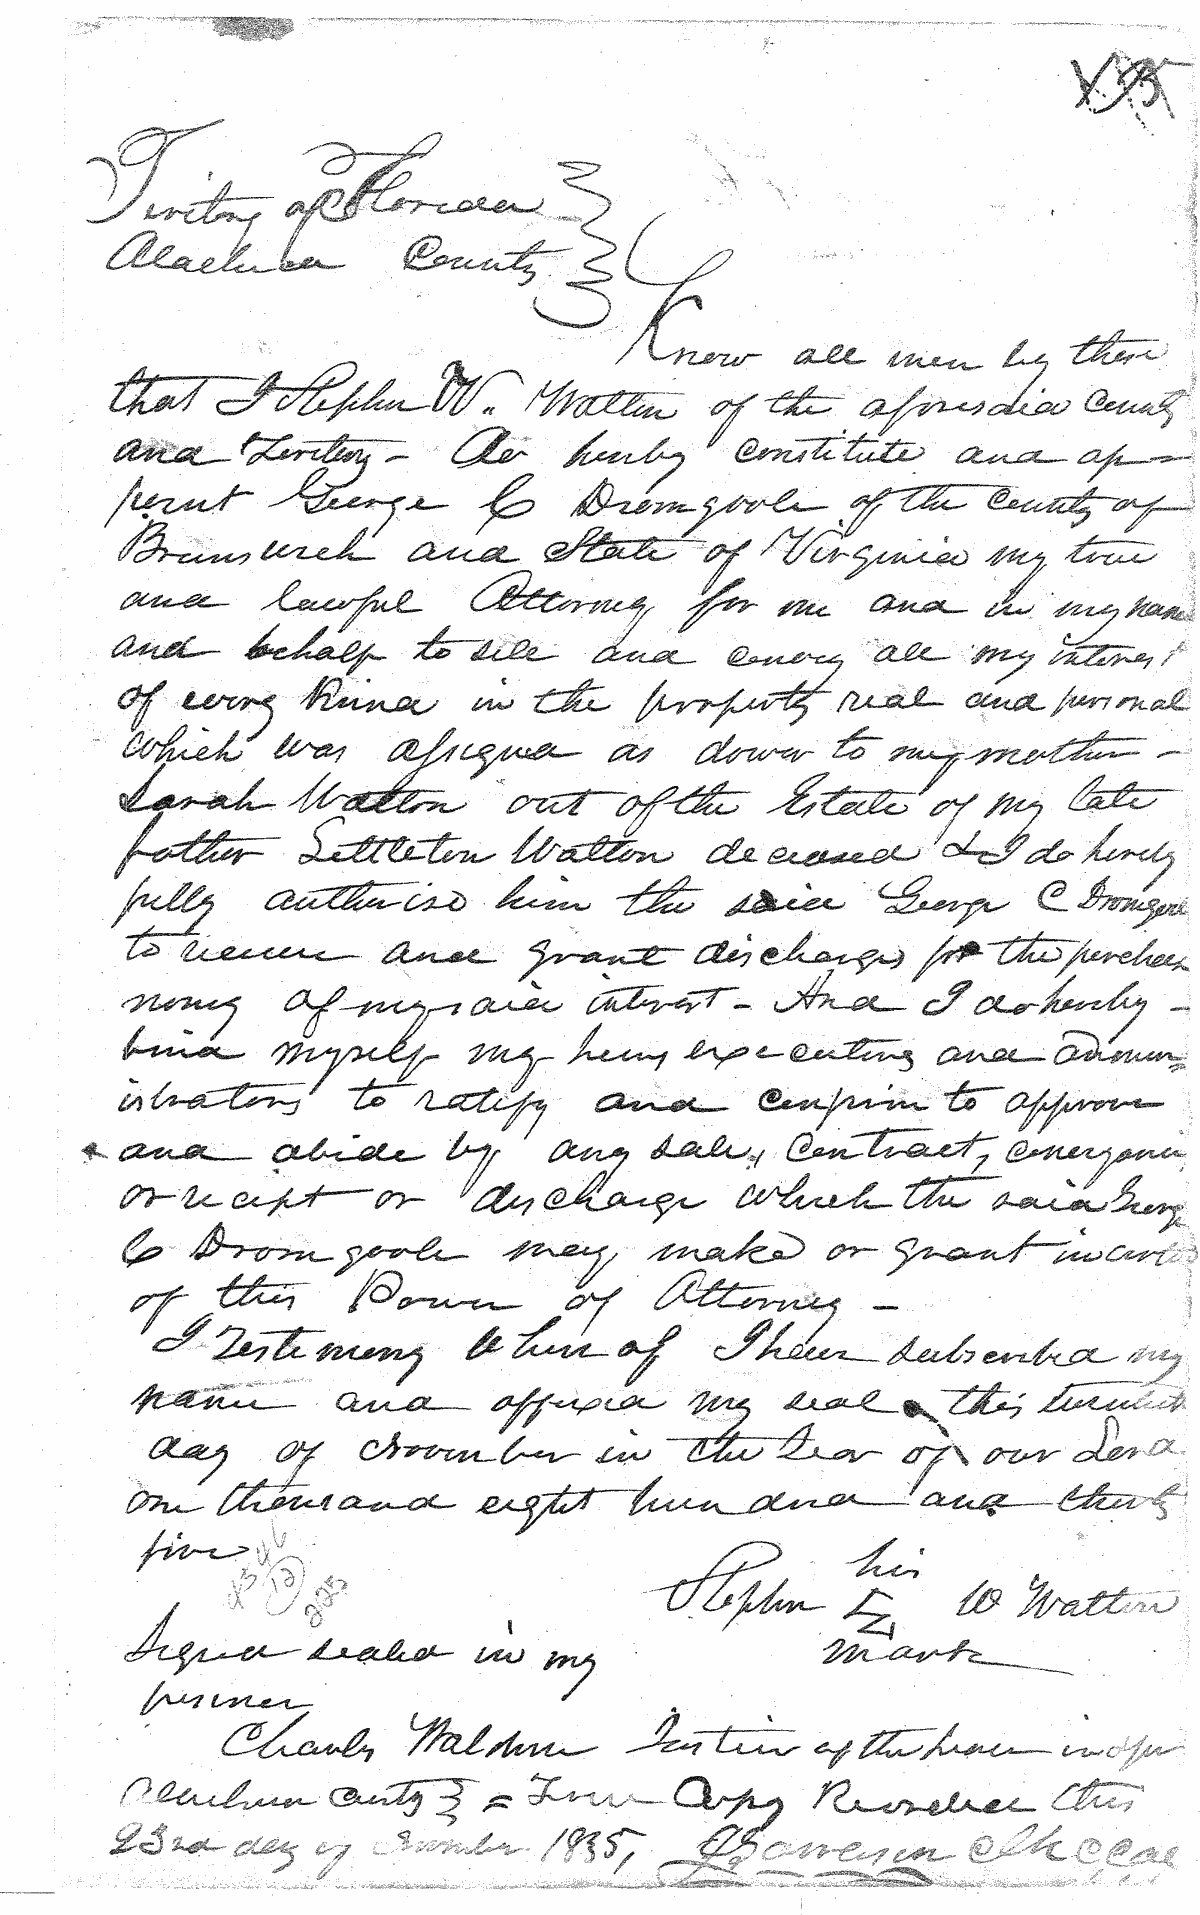 Teritory of Florida
Alachua County
Know all men by these
that I Stephen W. Walton of the aforesaid County
and Teritory - do hereby constitute and ap=
point George C Dromgoole of the County of
Brunswick and State of Virginia my true
and lawful Attorney for me and in my name
and behalf to sell and convey all my interest
of every kind in the property real and personal
which was assigned as dower to my mother -
Sarah Walton out of the Estate of my late
father Littleton Walton deceased & I do hereby
fully authorise him the said George C Dromgoole
to receive and grant discharges for the purchase
money of my said interest - And I do hereby -
bind myself my heirs executors and admin=
istrators to ratify and confirm to approve
and abide by any sale, contract, conveyance
or receipt or discharge which the said George
C Dromgoole may make or grant in
of this Power of Attorney -
I Testimony Where of I have subscribed my
name and affixed my seal this
day of November in the Year of our Lord
one thousand eight hundred and thirty
five
his
Stephen W Walton
mark
Signed sealed in my
presence
Charles Justice of the peace in &for
Alachua County = True Copy Recorded this
23rd day of November 1835, Clk CCAC